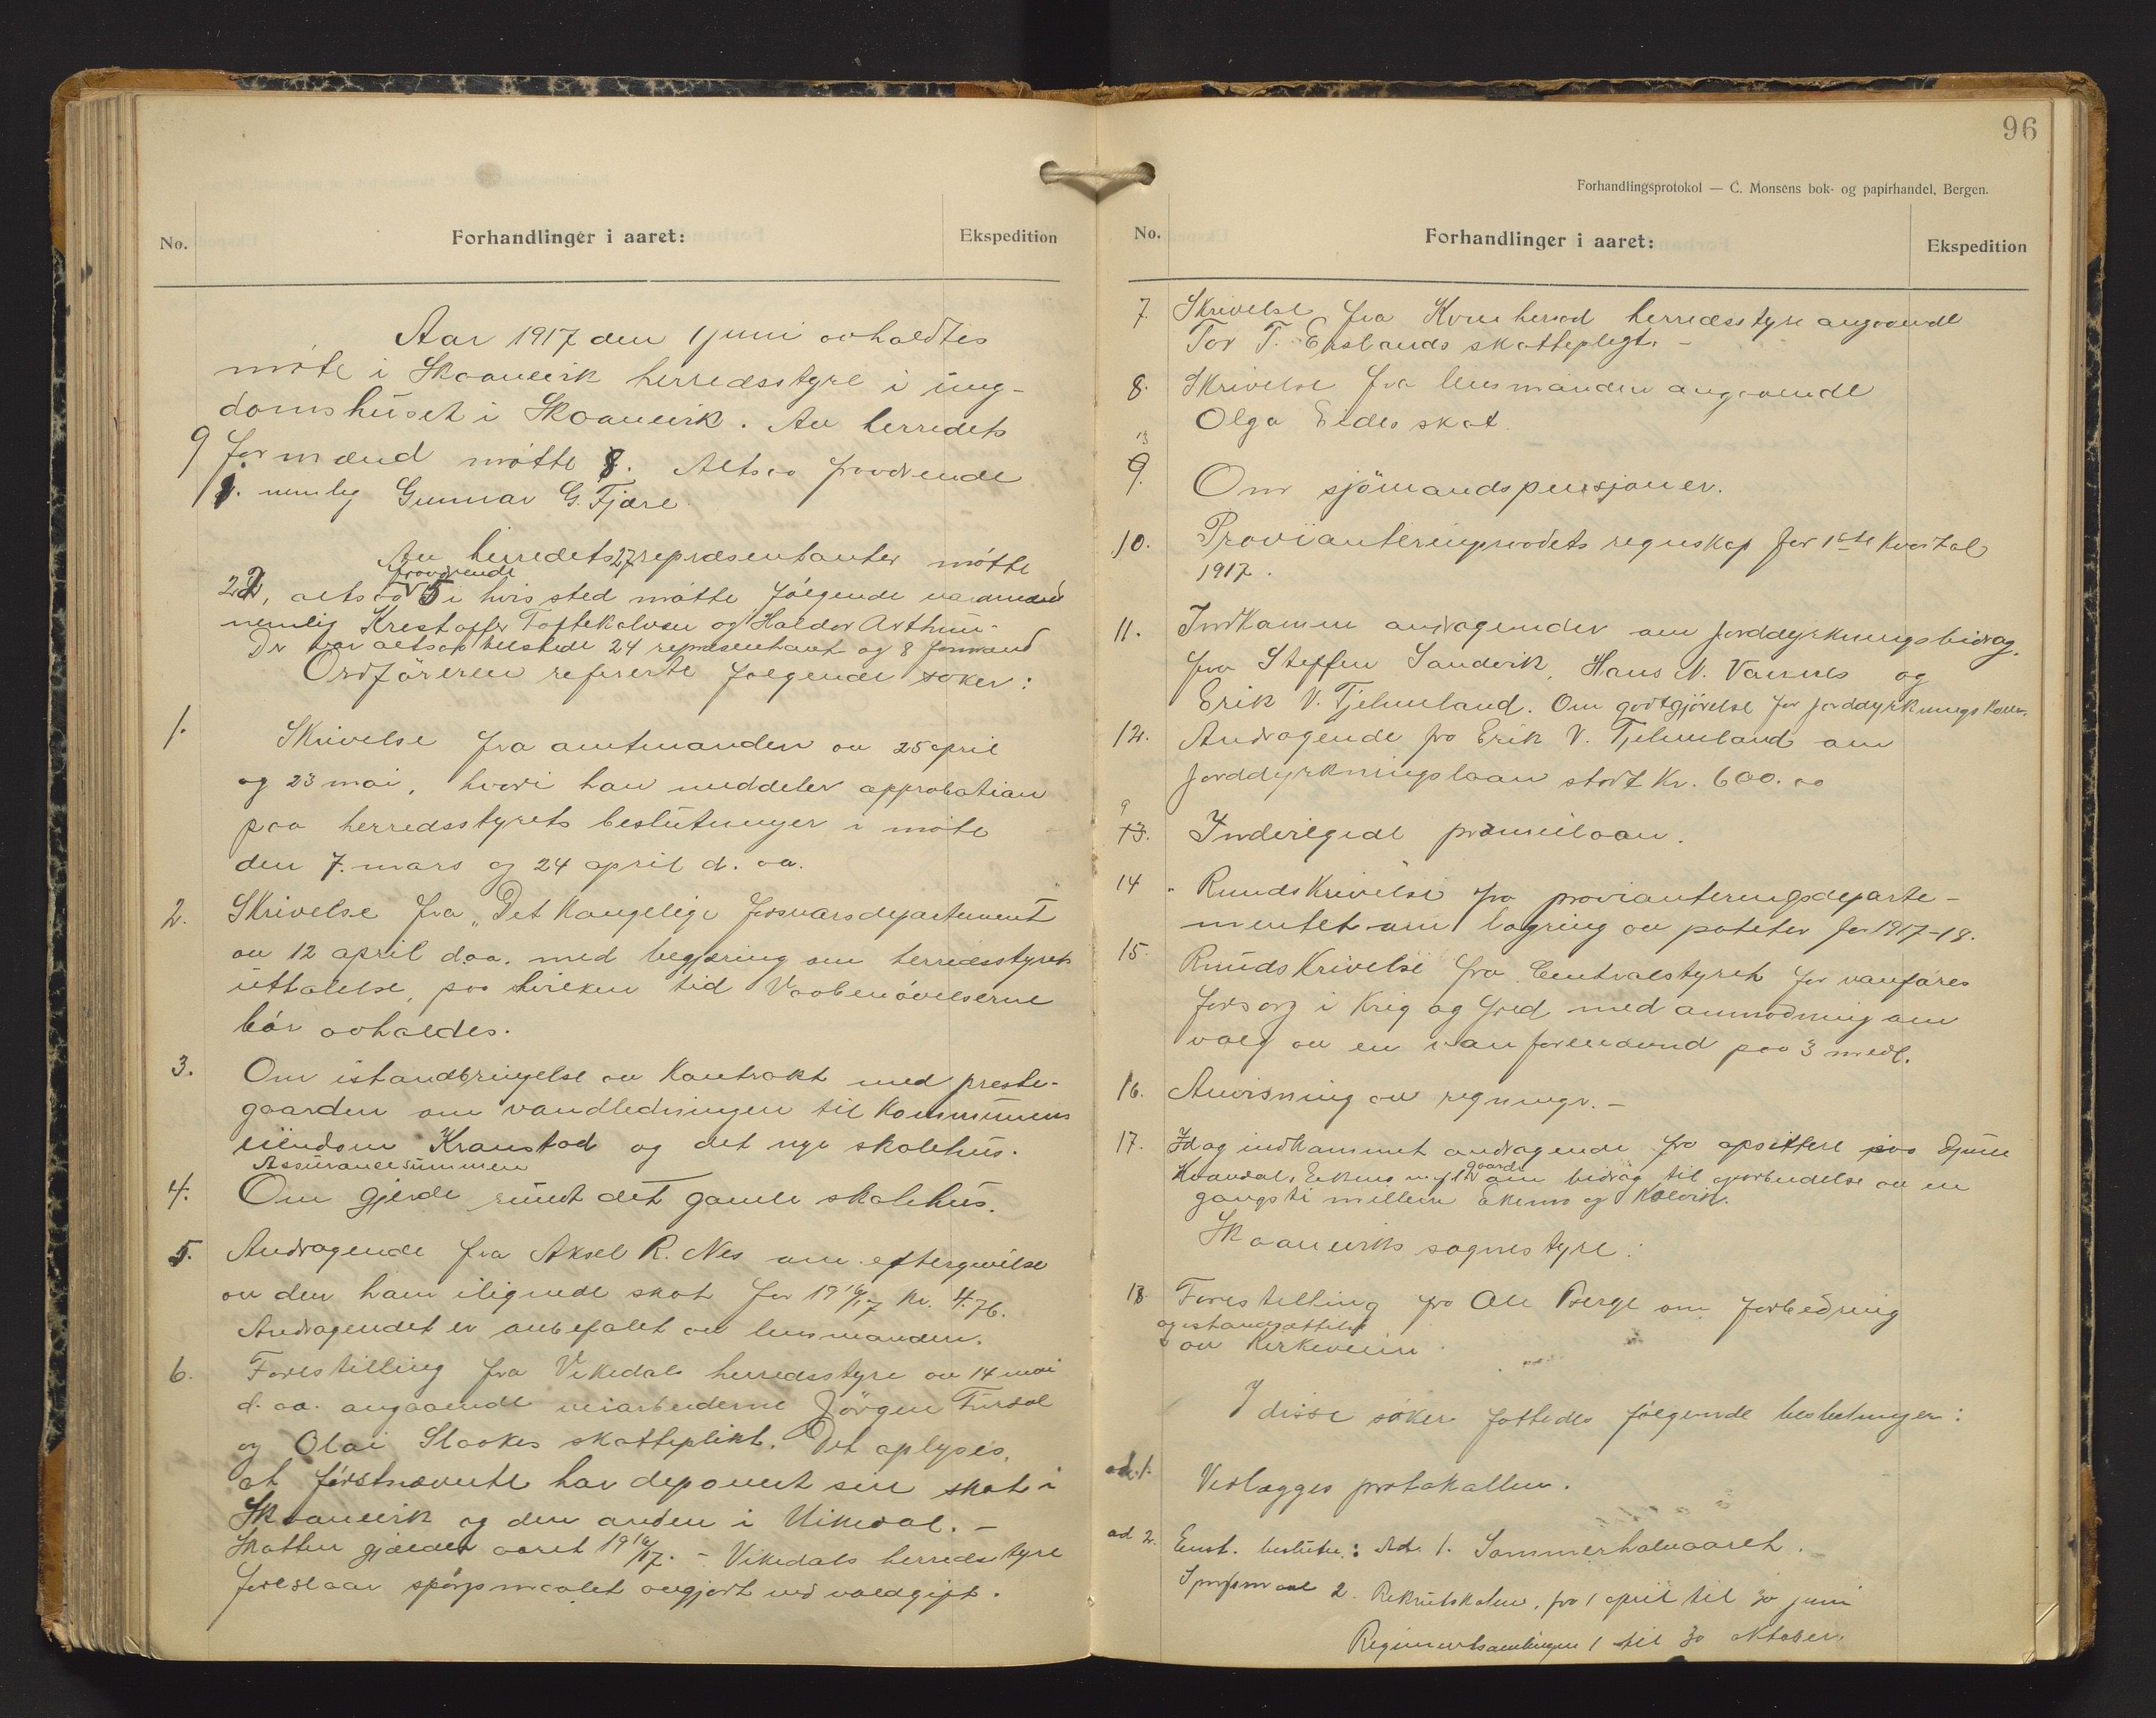 No.
Forhandlinger i aaret:
Ekspedition
Aar 1917 den 1 juni avholdtes
møte i Skaanevik herredsstyre i ung-
domshuset i Skaanevik. Av herredets
9 formænd møtte 8. Altsaa fraværende
1. nemlig Gunnar G. Fjære.
Av herredets 27 repræsentanter møtte
fraværende
22, altsaa 5 i hvis sted møtte følgende varamænd
nemlig Krestoffer Toftekalven og Haldor Arthun.
Der var altsaa tilstede 24 representant og 8 formænd
Ordføreren refererte følgende saker:
1. Skrivelse fra amtmanden av 25 april
og 23 mai, hvori han meddeler approbation
paa herredsstyrets beslutninger i møte
den 7. mars og 24 april d. aa.
2. Skrivelse fra "Det Kongelige forsvarsdepartement
av 12 april d.aa. med begjæring om herredsstyrets
uttalelse, paa hvilken tid Vaabenøvelserne
bør avholdes.
3. Om istandbringelse av Kontrakt med preste-
gaarden om vandledningen til Kommunens
eiendom Kranstad og det nye skolehus.
Assurancesummen
4. Om gjerde rundt det gamle skolehus.
5. Andragende fra Aksel R. Nes om eftergivelse
av den ham ilignede skat for 1916/17 Kr. 4.76.
Andragendet er anbefalet av lensmanden.
6. Forestilling fra Vikedals herredsstyre av 14 mai
d. aa. angaaende veiarbeiderne Jörgen Furdal
og Olai Slaakes skatteplikt. Det oplyses,
at førstnævnte har deponert sin skat i
Skaanevik og den anden i Vikedal. -
Skatten gjælder aaret 1916/17. - Vikedals herredsstyre
foreslaar spørgsmaalet avgjort ved voldgift.
96
Forhandlingsprotokol — C. Monsens bok- og papirhandel, Bergen.
No.
Forhandlinger i aaret:
Ekspedition
7. Skrivelse fra Kvinherad herredsstyre angaaende
Tor T. Eraslands skattepligt. -
8. Skrivelse fra lensmanden angaaende
Olga Eides skat.
13
9. Om sjömandspensjoner.
10. Provianteringsraadets regnskap for 1ste Kvartal
1917.
11. Indkomne andragender om jorddyrkningsbidrag.
fra Steffen Sandvik, Hans N. Vannes og
Erik V. Tjelmeland. Om godtgjörelse for jorddyrkningskom.
12. Andragende fra Erik V. Tjelmeland om
jorddyrkningslaan stort Kr. 600.00
9
13. Inderlgede præmielaan.
14. Rundskrivelse fra provianteringsdeparte-
mentet om lagring av poteter for 1917-18.
15. Rundskrivelse fra Centralstyret for vanføres
forsorg i Krig og fred med anmodning om
valg av en vanførenævnd paa 3 medl.
16. Anvisning av regninger. -
17. Idag indkommet andragende fra opsittere paa
gaarde
Kvandal, om bidrag til oparbeidelse av en
gangsti mellem Ekenes og Kalvik.
Skaaneviks sognestyre:
18. Forestilling fra Ole Berge om forbedring
og istandsættelse
av Kirkeveien.
I disse saker fattedes følgende beslutninger:
ad. 1. Vedlægges protokollen.
ad 2. Enst. beslutn.: Ad. 1. Sommerhalvaaret.
Spørsmaal 2. Rekrutskolen, fra 1 april til 30 juni
Regimentsamlingen 1 til 30 oktober.